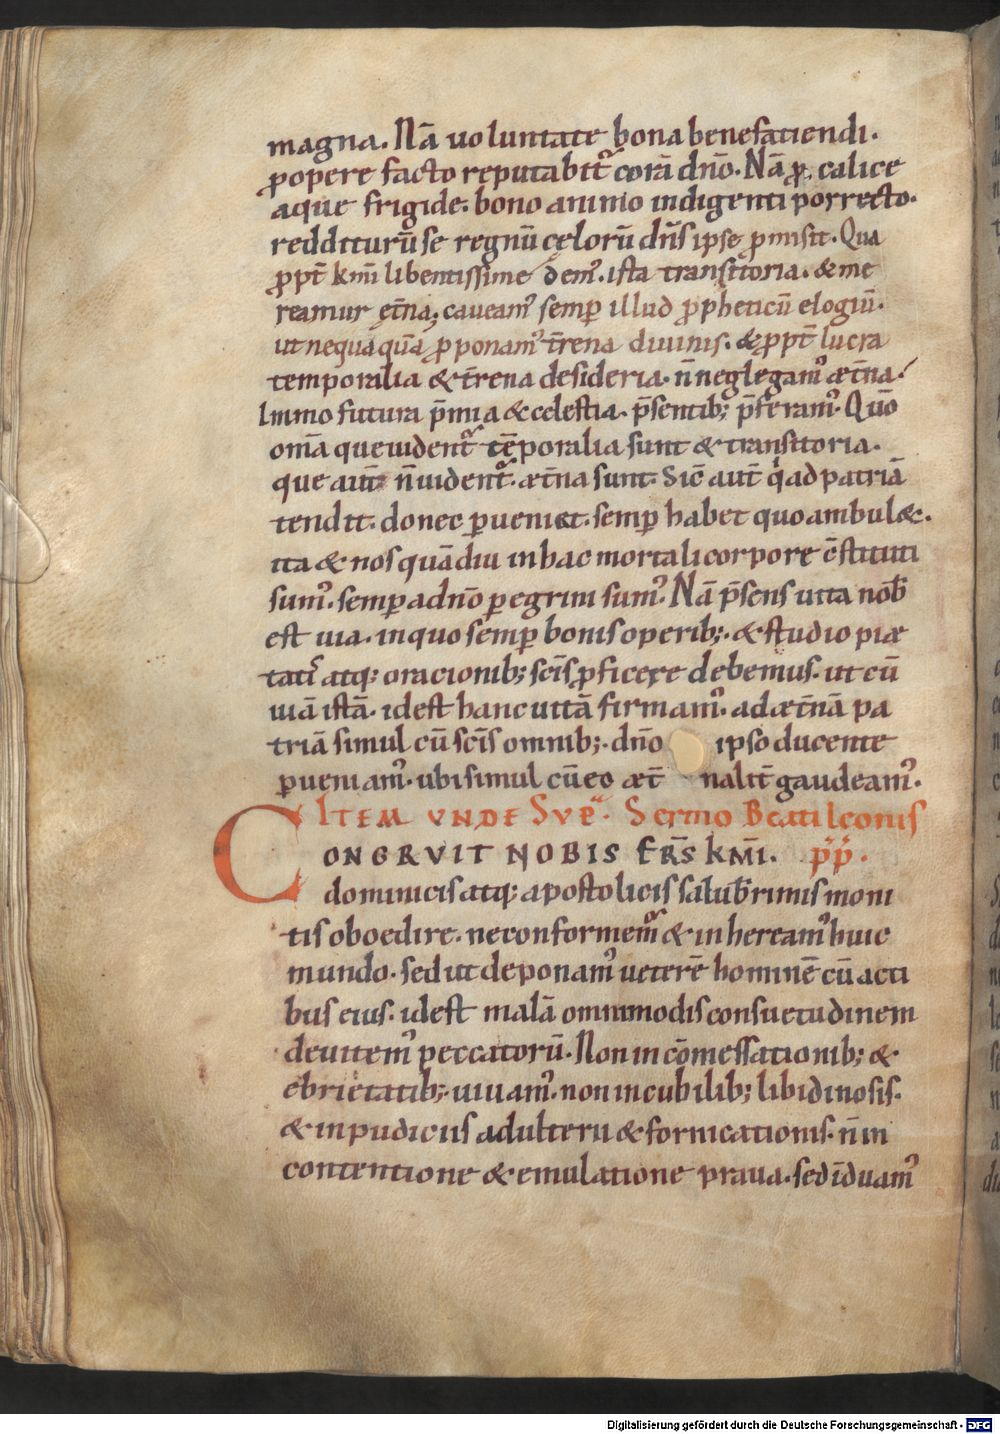 magna. Nā uoluntate bona benefatiendi.
ꝓ opere facto reputabit᷑ corā dn̄o. Nā ꝓ calice
aque frigide. bono animo indigenti porrecto.
redditurū se regnū cęlorū dn̄s ipse ꝓmisit. Qua
ꝓpt̄ km̄i libentissime demꝰ. ista transitoria. & me
reamur ęt̄na, caueamꝰ semꝑ illud ꝓpheticū elogiū.
ut nequaquā ꝓponamꝰ t̄rena diuinis. & ꝓpt̄ lucra
temporalia & t̄rena desideria. n̄ neglegamꝰ æt̄na.
Immo futura p̄mia & celestia. p̄sentib; p̄feramꝰ. Quō
om̄a que uident᷑ tēporalia sunt & transitoria.
que aut̄ n̄ uident᷑. æt̄na sunt. Sic̄ aut̄ qͥ ad patriā
tendit. donec ꝑueniat. semꝑ habet quo ambul&.
ita & nos quādiu in hac mortali corpore c̄stituti
sumꝰ. semꝑ ad dn̄o ꝑegrini sumꝰ. Nā p̄sens uita nob̄
est uia. in quo semꝑ bonis operib;. & studio piæ
tatꝭ atq; oracionib; sc̄is ꝓficere debemus. ut cū
uiā istā. id est hanc uitā firmamꝰ. ad æt̄nā pa
triā simul cū sc̄is omnib;. dn̄o ipso ducente
ꝑueniamꝰ. ubi simul cū eo æt̄ nalit̄ gaudeamꝰ.
ITEM VNDE SVPͣ. Sermo Beati leonis
CONGRVIT NOBIS FRS̄ KM̄I. pp̄.
dominicis atq; apostolicis salub̄rimis moni
tis oboedire. ne conformem᷑ & inhereamꝰ huic
mundo. sed ut deponamꝰ ueterē hominē cū acti
bus eius. id est malā omnimodis consuetudinem
deuitemꝰ peccatorū. Non in cōmessationib; &
ebrietatib;. uiuamꝰ. non in cubilib; libidinosis.
& inpudiciis adulterii & fornicationis. n̄ in
contentione & emulatione praua. sed īduamꝰ
Digitalisierung gefördert durch die Deutsche Forschungsgemeinschaft - DFG